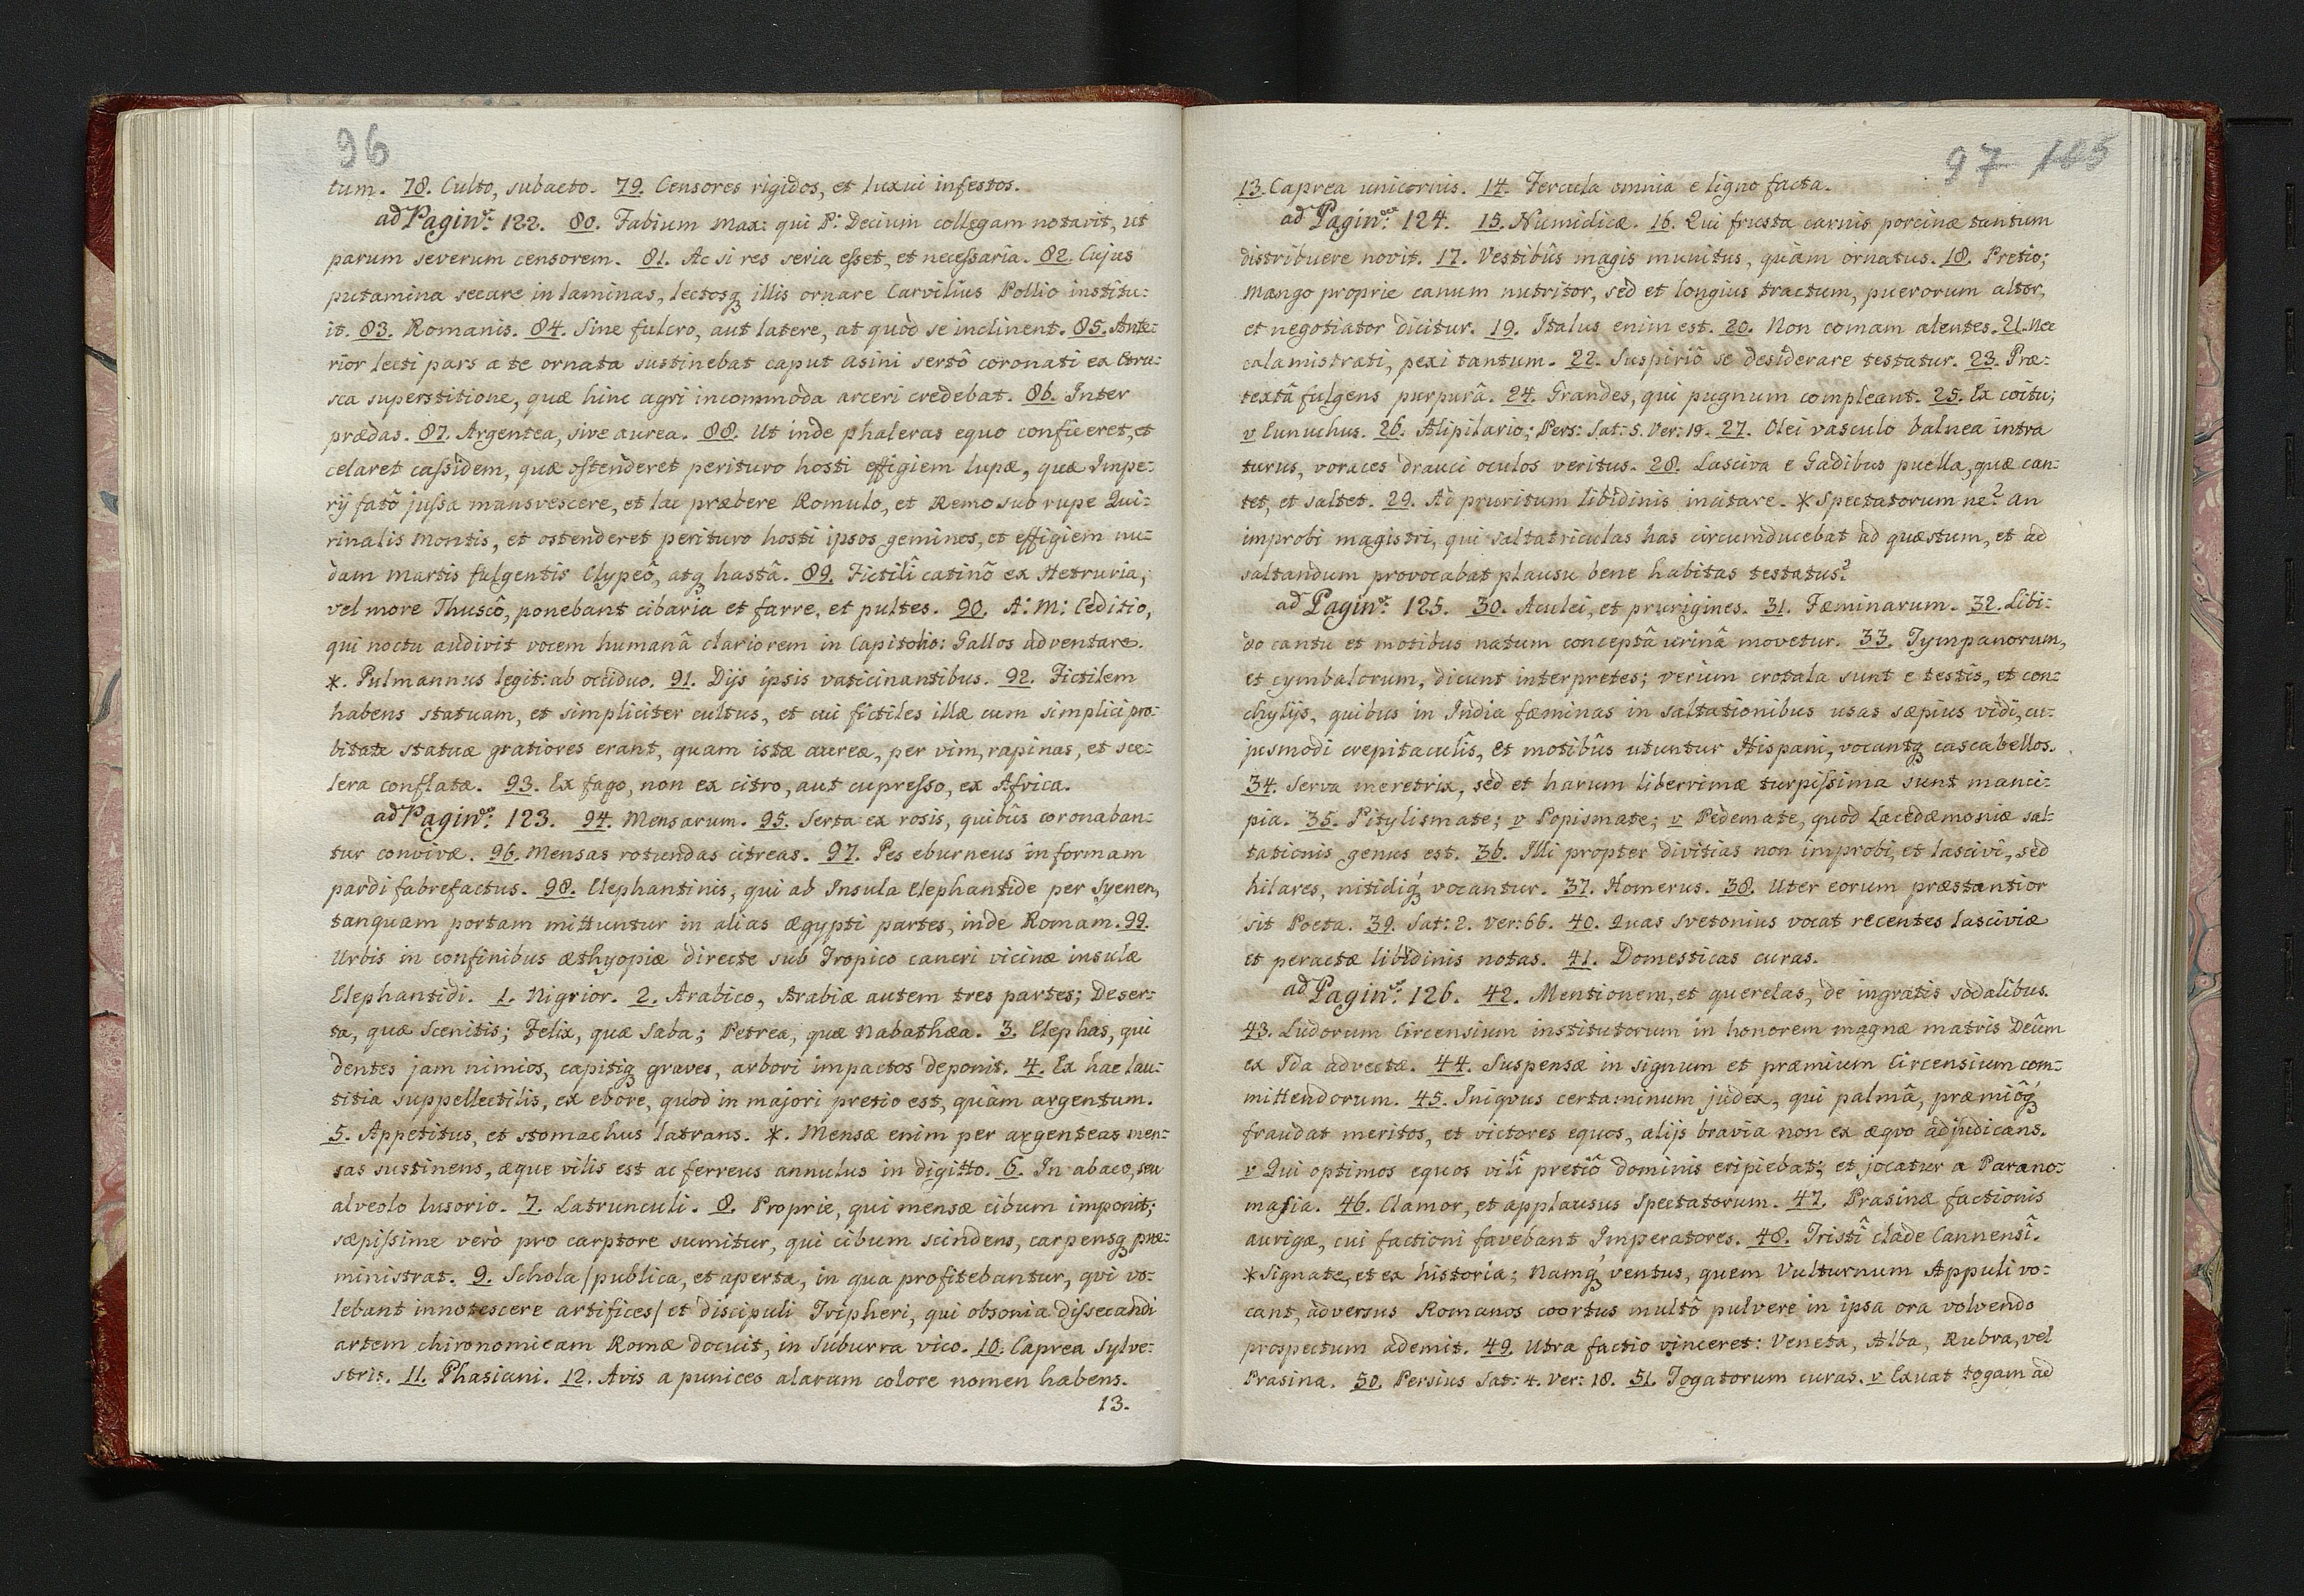 96
tum. 78. Culto, subacto. 79. Censores rigidos, et luxui infestos.
ad Pagin: 122. 80. Fabium Max: qui P: Decium collegam notavit, ut
parum severum censorem. 81. Ac si res seria eſset, et neceſsaria. 82. Cujus
putamina secare in laminas, lectosq illis ornare Carvilius Pollio institu:
it. 83. Romanis. 84. Sine fulcro, aut latere, at quòd se inclinent. 85. Ante:
rior lecti pars a te ornata sustinebat caput asini sertô coronati ex Etru:
sca superstitione, quæ hinc agri incommoda arceri credebat. 86. Inter
prædas. 87. Argentea, sive aurea. 88. Ut inde phaleras equo conficeret, et
celaret caſsidem, quæ oſtenderet perituro hosti effigiem lupæ, quæ Impe:
rij fatô juſsa mansvescere, et lac præbere Romulo, et Remo sub rupe Qui:
rinalis Montis, et ostenderet perituro hosti ipsos geminos, et effigiem nu:
dam Martis fulgentis Clypeô, atq hastâ. 89. Fictilî catinô ex Hetruria,
vel more Thuscô, ponebant cibaria et farre, et pultes. 90. A: M: Ceditio,
qui noctu audivit vocem humanâ clariorem in Capitolio: Gallos adventare.
*. Pulmannus legit: ab occiduo. 91. Dijs ipsis vaticinantibus. 92. Fictilem
habens statuam, et simpliciter cultus, et cui fictiles illæ cum simplici pro:
bitate statuæ gratiores erant, quam istæ aureæ, per vim, rapinas, et sce:
lera conflatæ. 93. Ex fago, non ex citro, aut cupreſso, ex Africa.
ad Pagin: 123. 94. Mensarum. 95. Serta ex rosis, quibûs coronaban:
tur convivæ. 96. Mensas rotundas citreas. 97. Pes eburneus in formam
pardi fabrefactus. 98. Elephantinis, qui ab Insula Elephantide per Syenen,
tanquam portam mittuntur in alias Ægypti partes, inde Romam. 99.
Urbis in confinibus Æthyopiæ directe sub Tropico cancri vicinæ insulæ
Elephantidi. 1. Nigrior. 2. Arabico, Arabiæ autem tres partes; Deser:
ta, quæ Scenitis; Felix, quæ Saba; Petrea, quæ Nabathæa. 3. Elephas, qui
dentes jam nimios, capitiq graves, arbori impactos deponit. 4. Ex hac lau:
titia suppellectilis, ex ebore, quòd in majori pretio est, quàm argentum.
5. Appetitus, et stomachus latrans. *. Mensæ enim per argenteas men:
sas sustinens, æque vilis est ac ferreus annulus in digitto. 6. In abaco, seu
alveolo lusorio. 7. Latrunculi. 8. Proprie, qui mensæ cibum imponit;
sæpiſsime verò pro carptore sumitur, qui cibum scindens, carpensq præ:
ministrat. 9. Schola /publica, et aperta, in qua profitebantur, qvi vo:
lebant innotescere artifices/ et discipuli Tripheri, qui obsonia diſsecandi
artem chironomicam Romæ docuit, in Suburra vico. 10. Caprea sylve:
stris. 11. Phasiani. 12. Avis a puniceo alarum colore nomen habens.
13.
97 105
13. Caprea unicornis. 14. Fercula omnia e ligno facta.
ad Pagin: 124. 15. Numidicæ. 16. Qui frusta carnis porcinæ tantum
distribuere novit. 17. Vestibûs magis munitus, quàm ornatus. 18. Pretio;
Mango proprie canum nutritor, sed et longius tractum, puerorum altor,
et negotiator dicitur. 19. Italus enim est. 20. Non comam alentes. 21. Nec
calamistrati, pexi tantum. 22. Suspiriô se desiderare testatur. 23. Præ:
textâ fulgens purpurâ. 24. Grandes, qui pugnum compleant. 25. Ex coitu;
v Eunuchus. 26. Alipilario; Pers: Sat: 5. Ver: 19. 27. Olei vasculo balnea intra
turus, voraces drauci oculos veritus. 28. Lasciva e Gadibus puella, quæ can:
tet, et saltet. 29. Ad pruritum libidinis incitare. * Spectatorum ne? an
improbi magistri, qui saltatriculas has circumducebat ad quæstum, et ad
saltandum provocabat plausu bene habitas testatus?
ad Pagin: 125. 30. Aculei, et prurigines. 31. Fæminarum. 32. Libi:
do cantu et motibus natum conceptâ urinâ movetur. 33. Tympanorum,
et cymbalorum, dicunt interpretes; verùm crotala sunt e testis, et con:
chylijs, quibus in India fæminas in saltationibus usas sæpius vidi, cu:
jusmodi crepitaculîs, et motibûs utuntur Hispani, vocantq cascabellos.
34. Serva meretrix, sed et harum liberrimæ turpiſsima sunt manci:
pia. 35. Pitylismate; v Popismate; v Pedemate, quod Lacedæmoniæ sal:
tationis genus est. 36. Illi propter divitias non improbi, et lascivi, sed
hilares, nitidiq vocantur. 37. Homerus. 38. Uter eorum præstantior
sit Poeta. 39. Sat: 2. Ver: 66. 40. Quas Svetonius vocat recentes lasciviæ
et peractæ libidinis notas. 41. Domesticas curas.
ad Pagin: 126. 42. Mentionem, et querelas, de ingratis sodalibus.
43. Ludorum Circensium institutorum in honorem magnæ matris Deûm
ex Ida advectæ. 44. Suspensæ in signum et præmium Circensium com:
mittendorum. 45. Iniqvus certaminum judex, qui palmâ, præmiôq
fraudat meritos, et victores equos, alijs bravia non ex æqvo adjudicans.
v Qui optimos equos vilî pretiô dominis eripiebat; et jocatur a Parano:
masia. 46. Clamor, et applausus Spectatorum. 47. Prasinæ factionis
aurigæ, cui factioni favebant Imperatores. 48. Tristî clade Cannensî.
* Signate, et ex historia; Namq ventus, quem Vulturnum Appuli vo:
cant, adversus Romanos coortus multô pulvere in ipsa ora volvendo
prospectum ademit. 49. Utra factio vinceret: Veneta, Alba, Rubra, vel
Prasina. 50. Persius Sat: 4. Ver: 18. 51. Togatorum curas. v Exuat togam ad